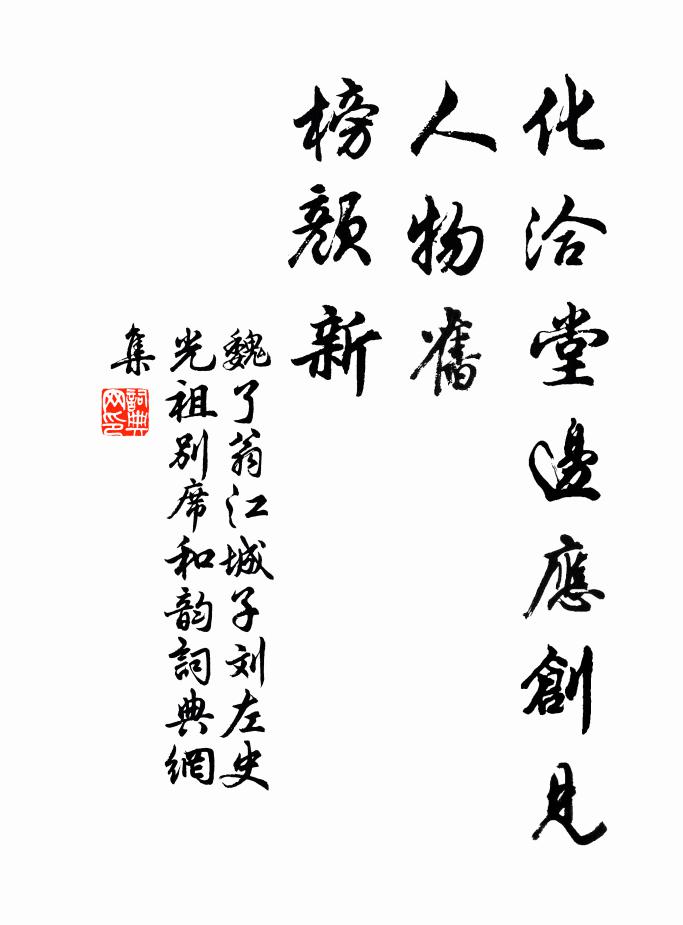 化洽堂邊應創見
人物舊
榜顏新
魏了翁江城子刘左史
光祖别席和韵詞典網
集
詞典
网印